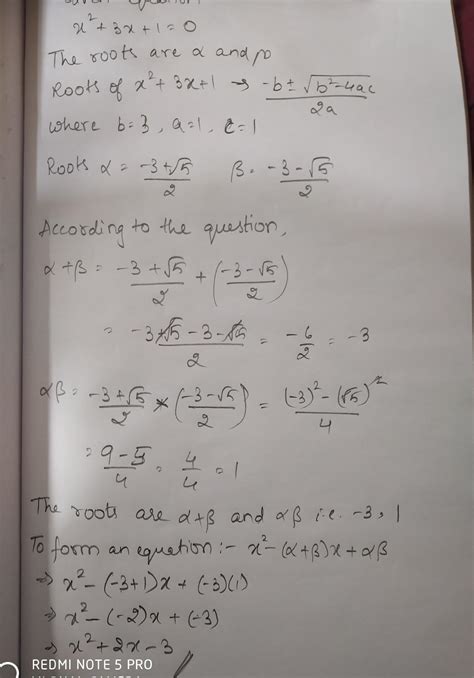 Given Question
x² + 3x + 1 = 0
The roots are α and β
Roots of x² + 3x + 1 → -b ± √b²-4ac / 2a
where b = 3, a = 1, c = 1
Roots α = -3+√5 / 2 β = -3-√5 / 2
According to the question,
α+β = -3+√5 / 2 + (-3-√5 / 2)
= -3+√5-3-√5 / 2 = -6/2 = -3
αβ = -3+√5 / 2 × (-3-√5 / 2) = (-3)² - (√5)² / 4
= 9-5 / 4 = 4/4 = 1
The roots are α+β and αβ i.e. -3, 1
To form an equation :- x² - (α+β)x + αβ
⇒ x² - (-3+1)x + (-3)(1)
⇒ x² - (-2)x + (-3)
⇒ x² + 2x - 3
REDMI NOTE 5 PRO